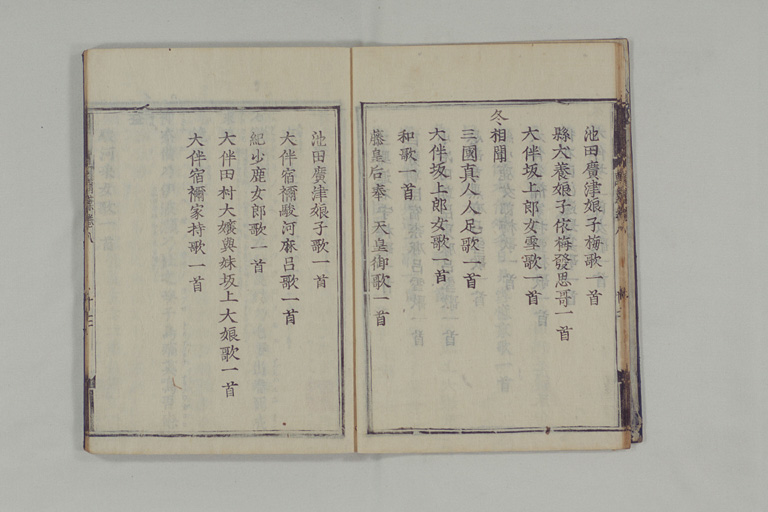 池田廣津娘子梅歌一首
縣犬養娘子依梅發思哥一首
大伴坂上郎女雪歌一首
冬相聞
三國真人人足歌一首
大伴坂上郎女歌一首
和歌一首
藤皇后奉 天皇御歌一首
池田廣津娘子歌一首
大伴宿禰駿河麻呂歌一首
紀少鹿女郎歌一首
大伴田村大孃與妹坂上大娘歌一首
大伴宿禰家持歌一首